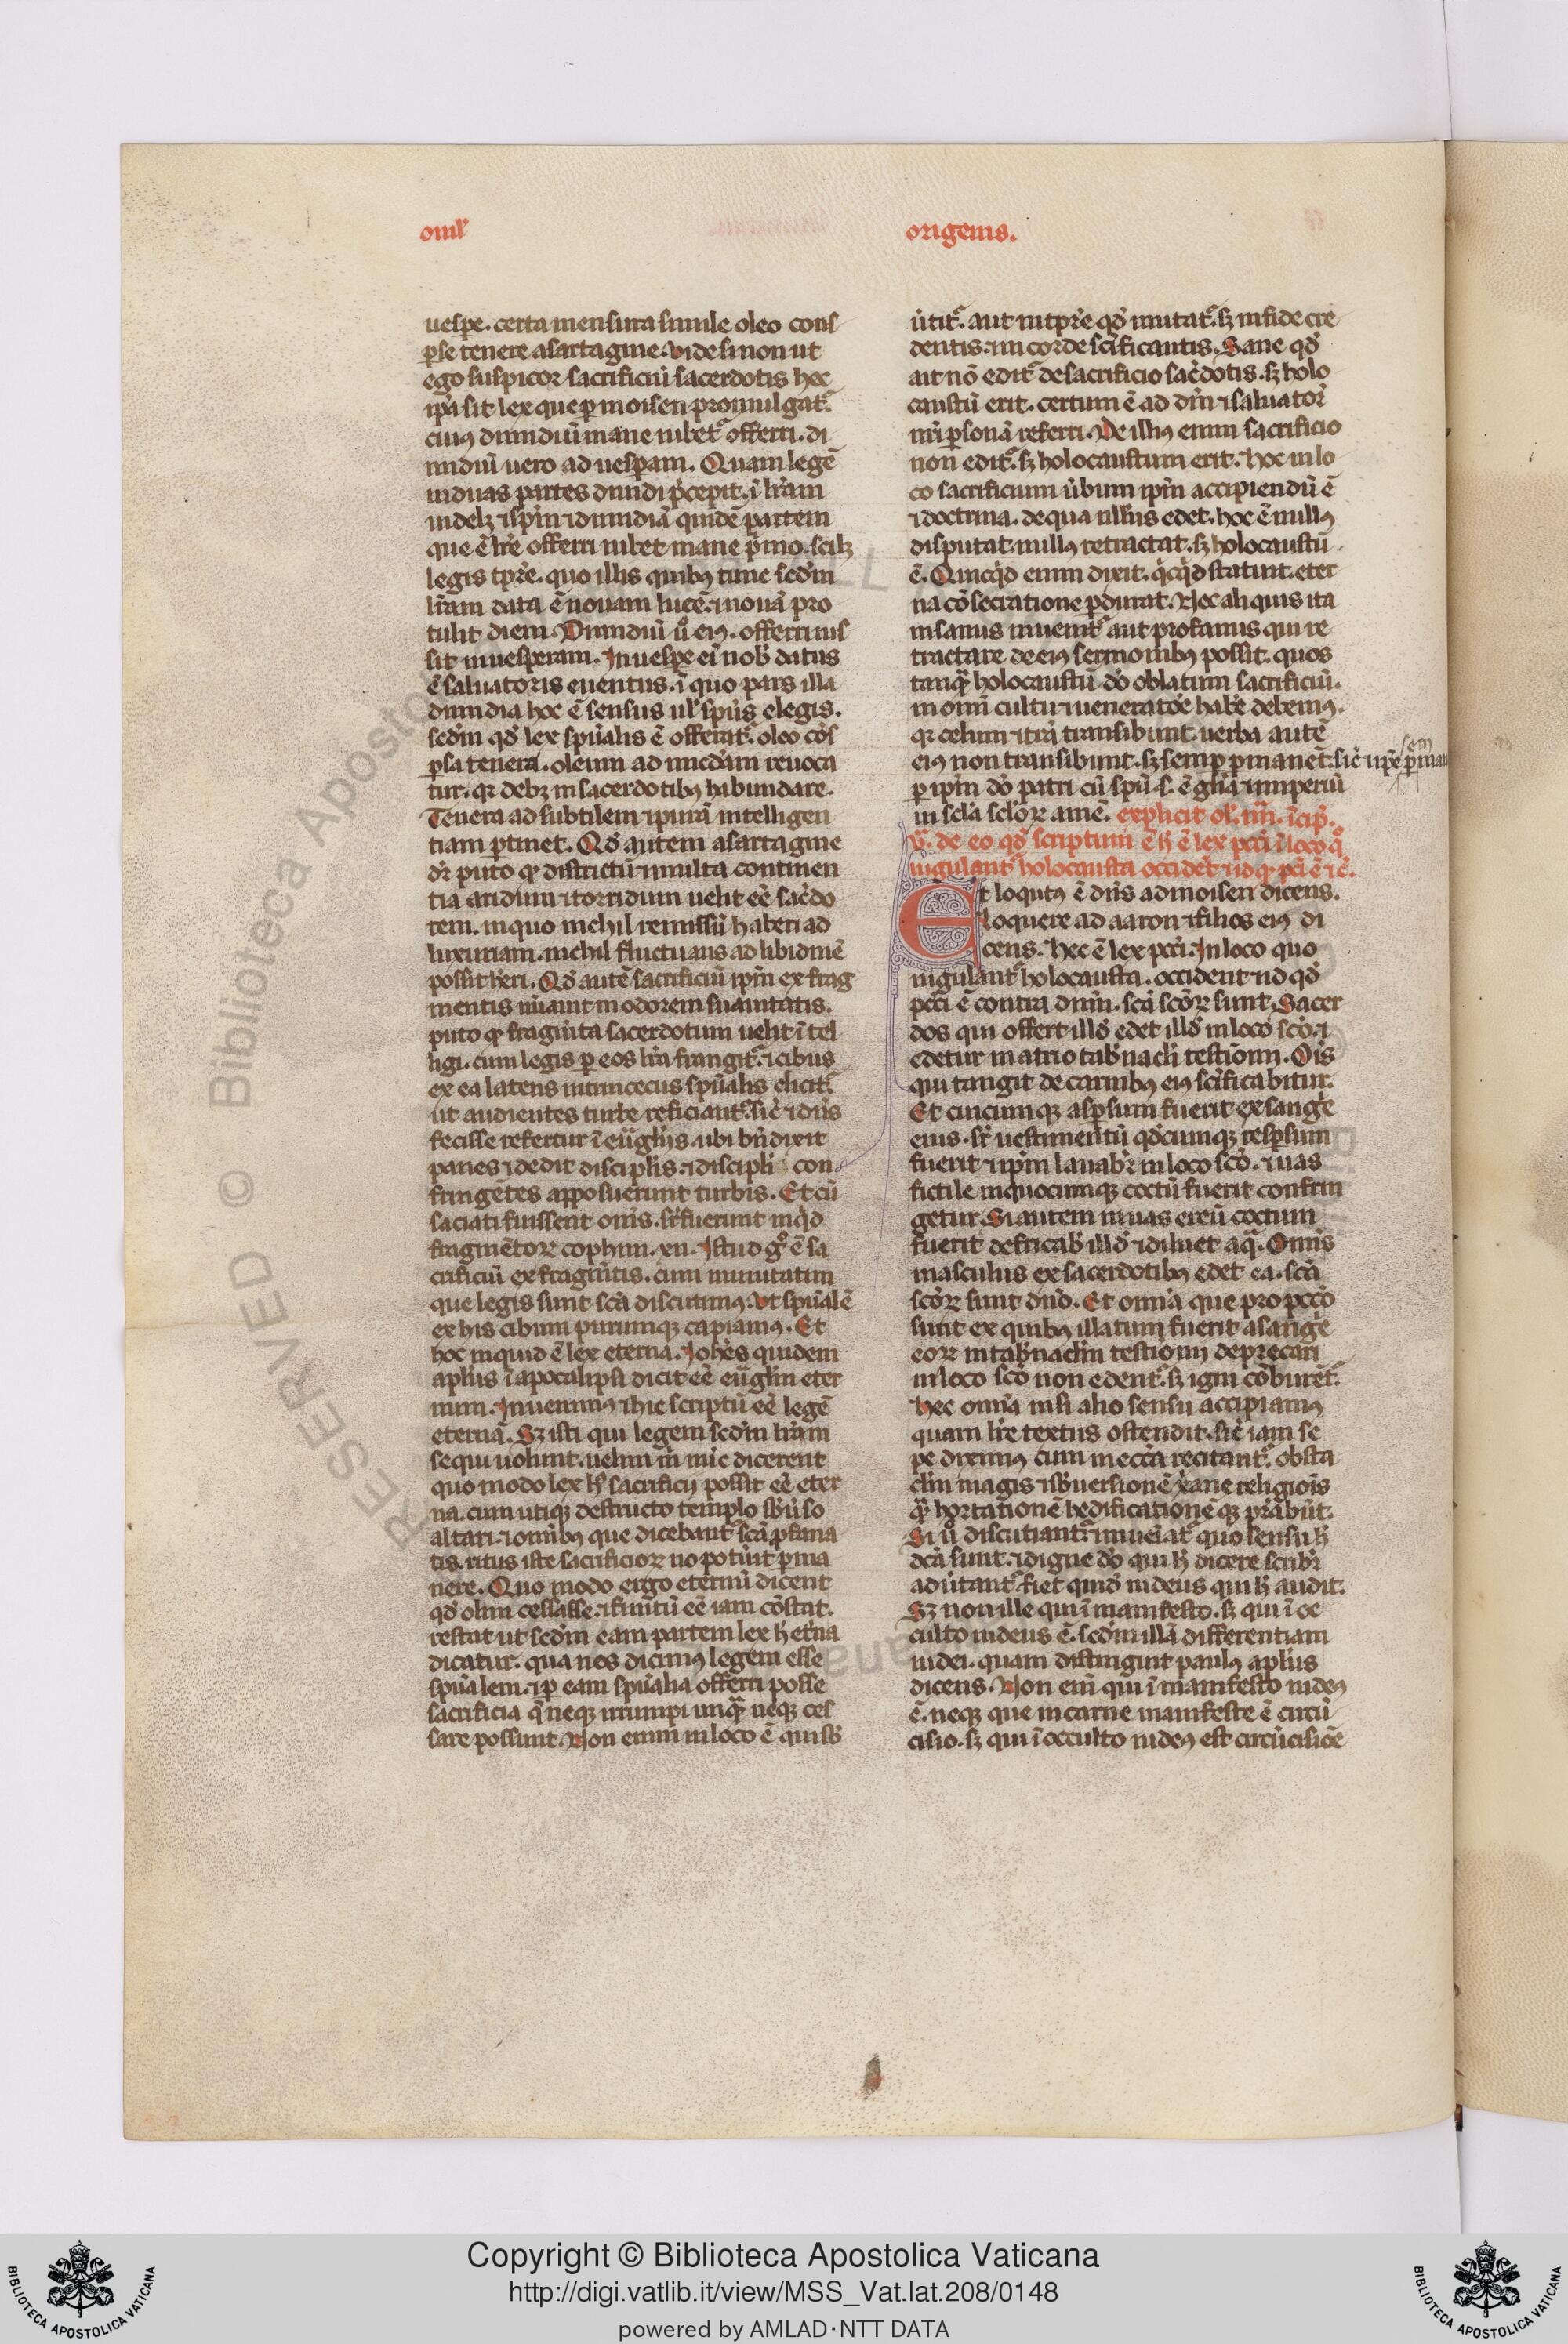 omłꝰ
origenis.
uesꝑe. certa mensura simile oleo cons
ꝑse tenere a sartagine. Vide si non ut
ego suspicor sacrificiū sacerdotis hec
ip̄a sit lex que ꝑ moisen promulgat᷑.
cuiꝰ dimidiū mane iubet᷑ offerri. di
midiū uero ad uesꝑam. Quam legē
in duas partes diuidi p̄cepit. ī lr̄am
uidelꝫ ⁊ sp̄m ⁊ dimidiā quidē partem
que ē lr̄e offerri iubet mane p̄mo. scilꝫ
legis tp̄re. quo illis quibꝰ tunc scd̄m
lr̄am data ē nouam lucē. ⁊ nouā pro
tulit diem. Dimidiū ů eiꝰ. offerri ius
sit in uesꝑeram. In uesꝑe eī nob̄ datus
ē saluatoris euentus. ī quo pars illa
dimidia hoc ē sensus ul̄ sp̄us elegis.
scd̄m qd̄ lex sp̄ualis ē offerat᷑. oleo cōs
ꝑsa tenera. oleum ad mīcd̄am reuoca
tur. qꝛ debꝫ in sacerdotibꝰ habundare.
Tenera ad subtilem ⁊ purā intelligen
tiam ꝑtinet. Qd̄ autem a sartagine
dr̄ puto ꝙ districtū ⁊ multa continen
tia aridum ⁊ torridum uelit eē sac̄do
tem. in quo nichil remissū haberi ad
luxuriam. nichil fluctuans ad libidinē
possit heri. Qd̄ autē sacrificiū ip̄m ex frag
mentis mīauit in odorem suauitatis.
puto ꝙ fragm̄ta sacerdotum uelit ītel
ligi. cum legis ꝑ eos lr̄a frangit᷑. ⁊ cibus
ex ea latens intrincecus sp̄ualis elicit᷑.
ut audientes turbe reficiant᷑. sic̄ ⁊ dn̄s
fecisse refertur ī eūgl̄ijs. ubi bn̄dixit
panes ⁊ dedit discipl̄is. ⁊ discipl̄i con
fringētes apposuerunt turbis. Et cū
saciati fuissent om̄s. sr̄fuerunt inq̄d
fragmētoꝝ cophini. xii. Istud gͦ ē sa
crificiū ex fragm̄tis. cum minutatim
que legis sunt sc̄a discutimꝰ. Vt sp̄ualē
ex his cibum purumqꝫ capiamꝰ. Et
hoc inquid ē lex eterna. Ioh̄es quidem
apl̄us ī apocalipsi dicit eē eūgl̄m eter
num. Inuenimꝰ ⁊ hic scriptū eē legē
eternā. Sꝫ isti qui legem scd̄m lr̄am
sequi uolunt. uelim m̄ mīc dicerent
quo modo lex hꝰ sacrificij possit eē eter
na. cum utiqꝫ destructo templo sb̄u̇so
altari. ⁊ omībꝰ que dicebant᷑ sc̄a ꝓfana
tis. ritus iste sacrificioꝝ nō potuit ꝑma
nere. Quo modo ergo eternū dicent
qd̄ olim cessasse. ⁊ finitū eē iam cōstat.
restat ut scd̄m eam partem lex h̄ et̄na
dicatur. qua nos dicimꝰ legem esse
sp̄ualem. ⁊ ꝑ eam sp̄ualia offerri posse
sacrificia q̄ neqꝫ irrumpi unqͣ neqꝫ ces
sare possunt. Non enim in loco ē qui sb̄
u̇tit᷑. aut in tp̄re qd̄ mutat᷑. sꝫ in fide cre
dentis. ⁊ in corde sc̄ificantis. Sane qd̄
ait nō edit᷑ de sacrificio sac̄dotis. sꝫ holo
caustū erit. certum ē ad dn̄m ⁊ saluator̄
nr̄i ꝑsonā referri. De illiꝰ enim sacrificio
non edit᷑. sꝫ holocaustum erit. Hoc in lo
co sacrificium u̇bum ip̄m accipiendū ē
⁊ doctrina. de qua nll̄us edet. hoc ē nullꝰ
disputat. nullꝰ retractat. sꝫ holocaustū
ē. Quicq̄d enim dixit. q̇cq̄d statuit. eter
na cōsecratione ꝑdurat. Nec aliquis ita
insanus inuenit᷑ aut profanus qui re
tractare de eiꝰ sermonibꝰ possit. quos
tanqͣ holocaustū dō oblatum sacrificiū.
in omī cultu ⁊ ueneratōe habr̄e debemꝰ.
qꝛ celum ⁊ tr̄a transibunt. uerba autē
eiꝰ non transibunt. sꝫ semꝑ ꝑmanēt. sic̄ ⁊ ip̄e sem̄ ꝑman
ꝑ ip̄m dō patri cū sp̄u s̄. ē gl̄ia ⁊ imperiū
in scl̄a scl̄oꝝ amē. explicit ol̄. iiii. īcip̄.
v̄. de eo qd̄ scriptum ē h̄ ē lex pcc̄i ī loco qͦ
iugulant᷑ holocausta occidet᷑ id qꝫ pc̄i ē ⁊ c̄.
Et loqutꝰ ē dn̄s ad moisen dicens.
loquere ad aaron ⁊ filios eiꝰ di
cens. Hec ē lex pcc̄i. In loco quo
iugulant᷑ holocausta. occident id qd̄
pcc̄i ē contra dnm̄. sc̄a sc̄oꝝ sunt. Sacer
dos qui offert illd̄ edet illd̄ in loco sc̄o. ⁊
edetur in atrio tab̄nacl̄i testīonii. Om̄is
qui tangit de carnibꝰ eiꝰ sc̄ificabitur.
Et cuicumqꝫ asꝑsum fuerit ex sanḡe
eius. sr̄ uestimentū qd̄cumqꝫ resꝑsum
fuerit ⁊ ip̄m lauab̄r in loco sc̄o. ⁊ uas
fictile in quocumqꝫ coctū fuerit confrin
getur. Si autem in uas ereū coctum
fuerit defricab̄ illd̄ ⁊ diluet aqͣ. Omīs
masculus ex sacerdotibꝰ edet ea. sc̄a
sc̄oꝝ sunt dn̄o. Et omīa que pro pcc̄o
sunt ex quibꝰ illatum fuerit a sanḡe
eoꝝ in tab̄nacl̄m testīonij deprecari
in loco sc̄o non edent᷑. sꝫ igni cōburēt᷑.
Hec omīa nisi alio sensu accipiamꝰ
quam lr̄e textus ostendit. sic̄ iam se
pe diximꝰ cum in ecc̄a recitant᷑. obsta
cl̄m magis ⁊ sb̄uersionē xp̄iane religiois̄
qͣ hortationē hedificationēqꝫ p̄rābūt.
Si ů discutiant᷑. ⁊ inueiāt᷑ quo sensu h̄
dc̄a sunt. ⁊ digne dō qui h̄ dicere scrib̄r
adu̇tant᷑ fiet quid᷑ iudeus qui h̄ audit.
Sꝫ non ille qui ī manifesto. sꝫ qui ī oc
culto iudeus ē. scd̄m illā differentiam
iudei. quam distinguit paulꝰ apl̄us
dicens. Non enī qui ī manifesto iudeꝰ
ē. neqꝫ que in carne manifeste ē circū
cisio. sꝫ qui ī occulto iudeꝰ est circūcisiōe
RESERVED © Biblioteca Apostolica Vaticana
Copyright © Biblioteca Apostolica Vaticana
http://digi.vatlib.it/view/MSS_Vat.lat.208/0148
powered by AMLAD·NTT DATA
BIBLIOTECA APOSTOLICA VATICANA
BIBLIOTECA APOSTOLICA VATICANA